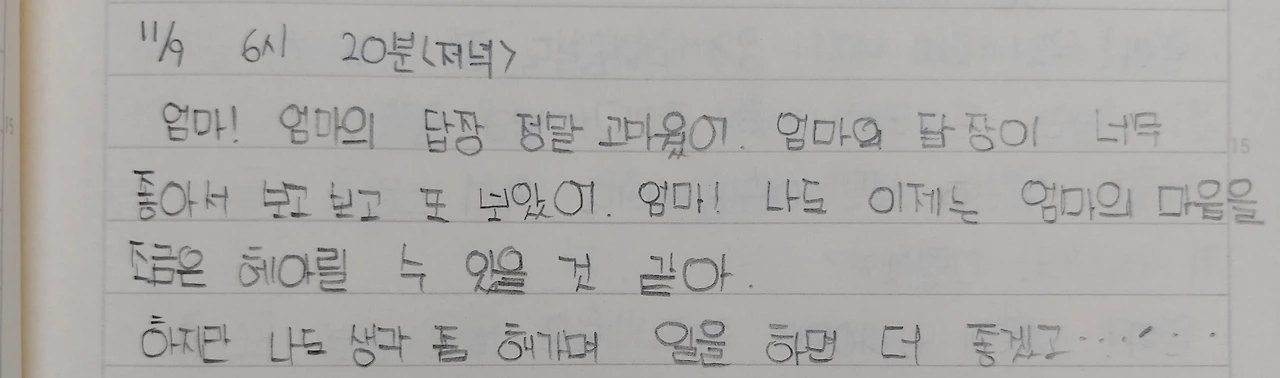 11/9 6시 20분<저녁>
엄마! 엄마의 답장 정말 고마웠어. 엄마의 답장이 너무
좋아서 보고 보고 또 보았어. 엄마! 나도 이제는 엄마의 마음을
조금은 헤아릴 수 있을 것 같아.
하지만 나도 생각 좀 해가며 일을 하면 더 좋겠고······
15
15